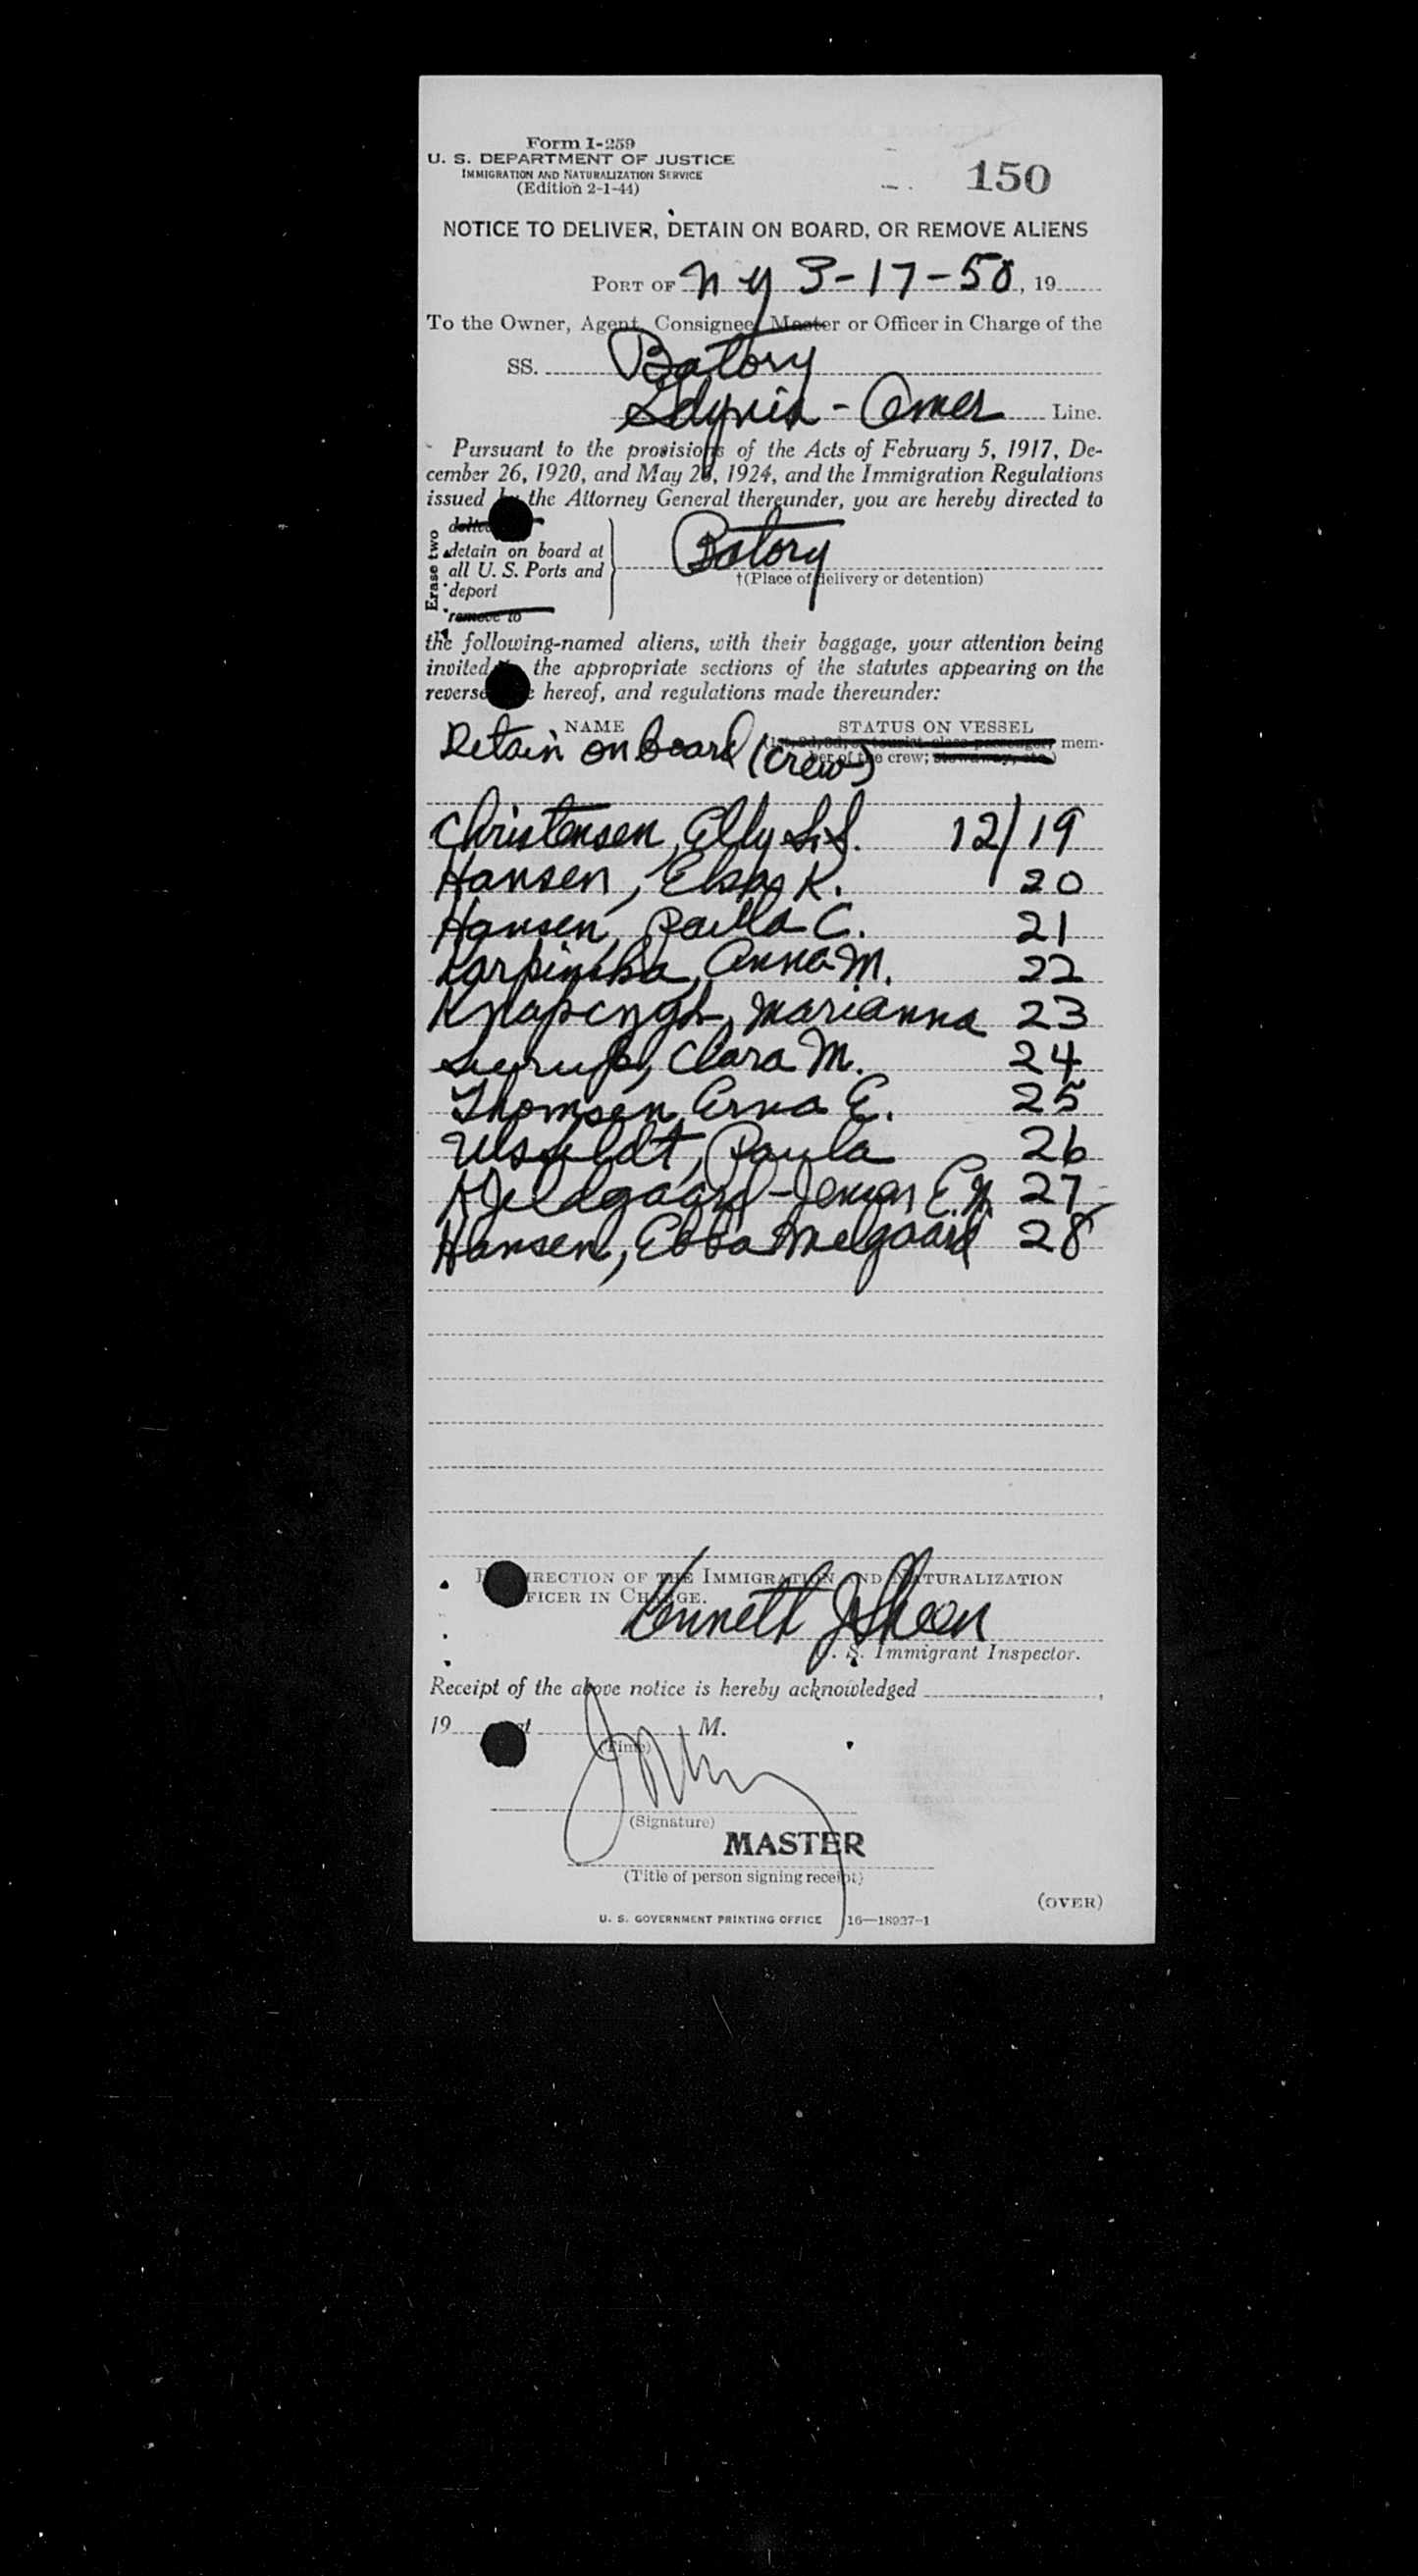 Form I-259
U. S. DEPARTMENT OF JUSTICE
IMMIGRATION AND NATURALIZATION SERVICE
(Edition 2-1-44)
150
NOTICE TO DELIVER, DETAIN ON BOARD, OR REMOVE ALIENS
PORT OF N Y 3-17-50, 19
To the Owner, Agent, Consignee, Master or Officer in Charge of the
SS. Batory
Gdynia - Amer Line.
Pursuant to the provisions of the Acts of February 5, 1917, De-
cember 26, 1920, and May 26, 1924, and the Immigration Regulations
issued by the Attorney General thereunder, you are hereby directed to
Erase two
detain on board at
all U. S. Ports and
deport
remove to
Batory
†(Place of delivery or detention)
the following-named aliens, with their baggage, your attention being
invited the appropriate sections of the statutes appearing on the
reverse hereof, and regulations made thereunder:
NAME STATUS ON VESSEL
(1st, 2d, 3d, or tourist class passenger, mem-
ber of the crew; stowaway, etc.)
Detain on board (crew)
Christensen, Elly S.S. 12/19
Hansen, K. 20
Hansen, Paula C. 21
Karpinska, Anna M. 22
Marianna 23
Clara M. 24
Thomsen, Erna E. 25
Paula 26
Kjeldgaard-Jensen E. 27
Hansen, Ebba Melgaard 28
DIRECTION OF THE IMMIGRATION AND NATURALIZATION
OFFICER IN CHARGE.
Kenneth J Sheen
U. S. Immigrant Inspector.
Receipt of the above notice is hereby acknowledged ,
19 at M.
(Time)
(Signature)
MASTER
(Title of person signing receipt)
(OVER)
U. S. GOVERNMENT PRINTING OFFICE 16—18927-1